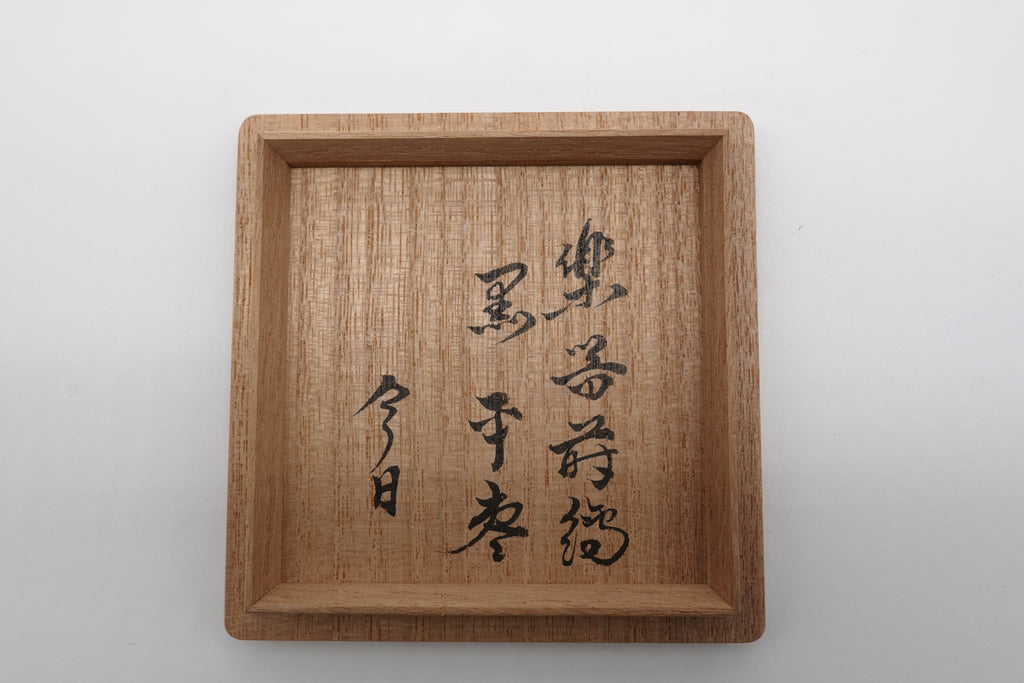 楽器蒔絵
黒平棗
今日